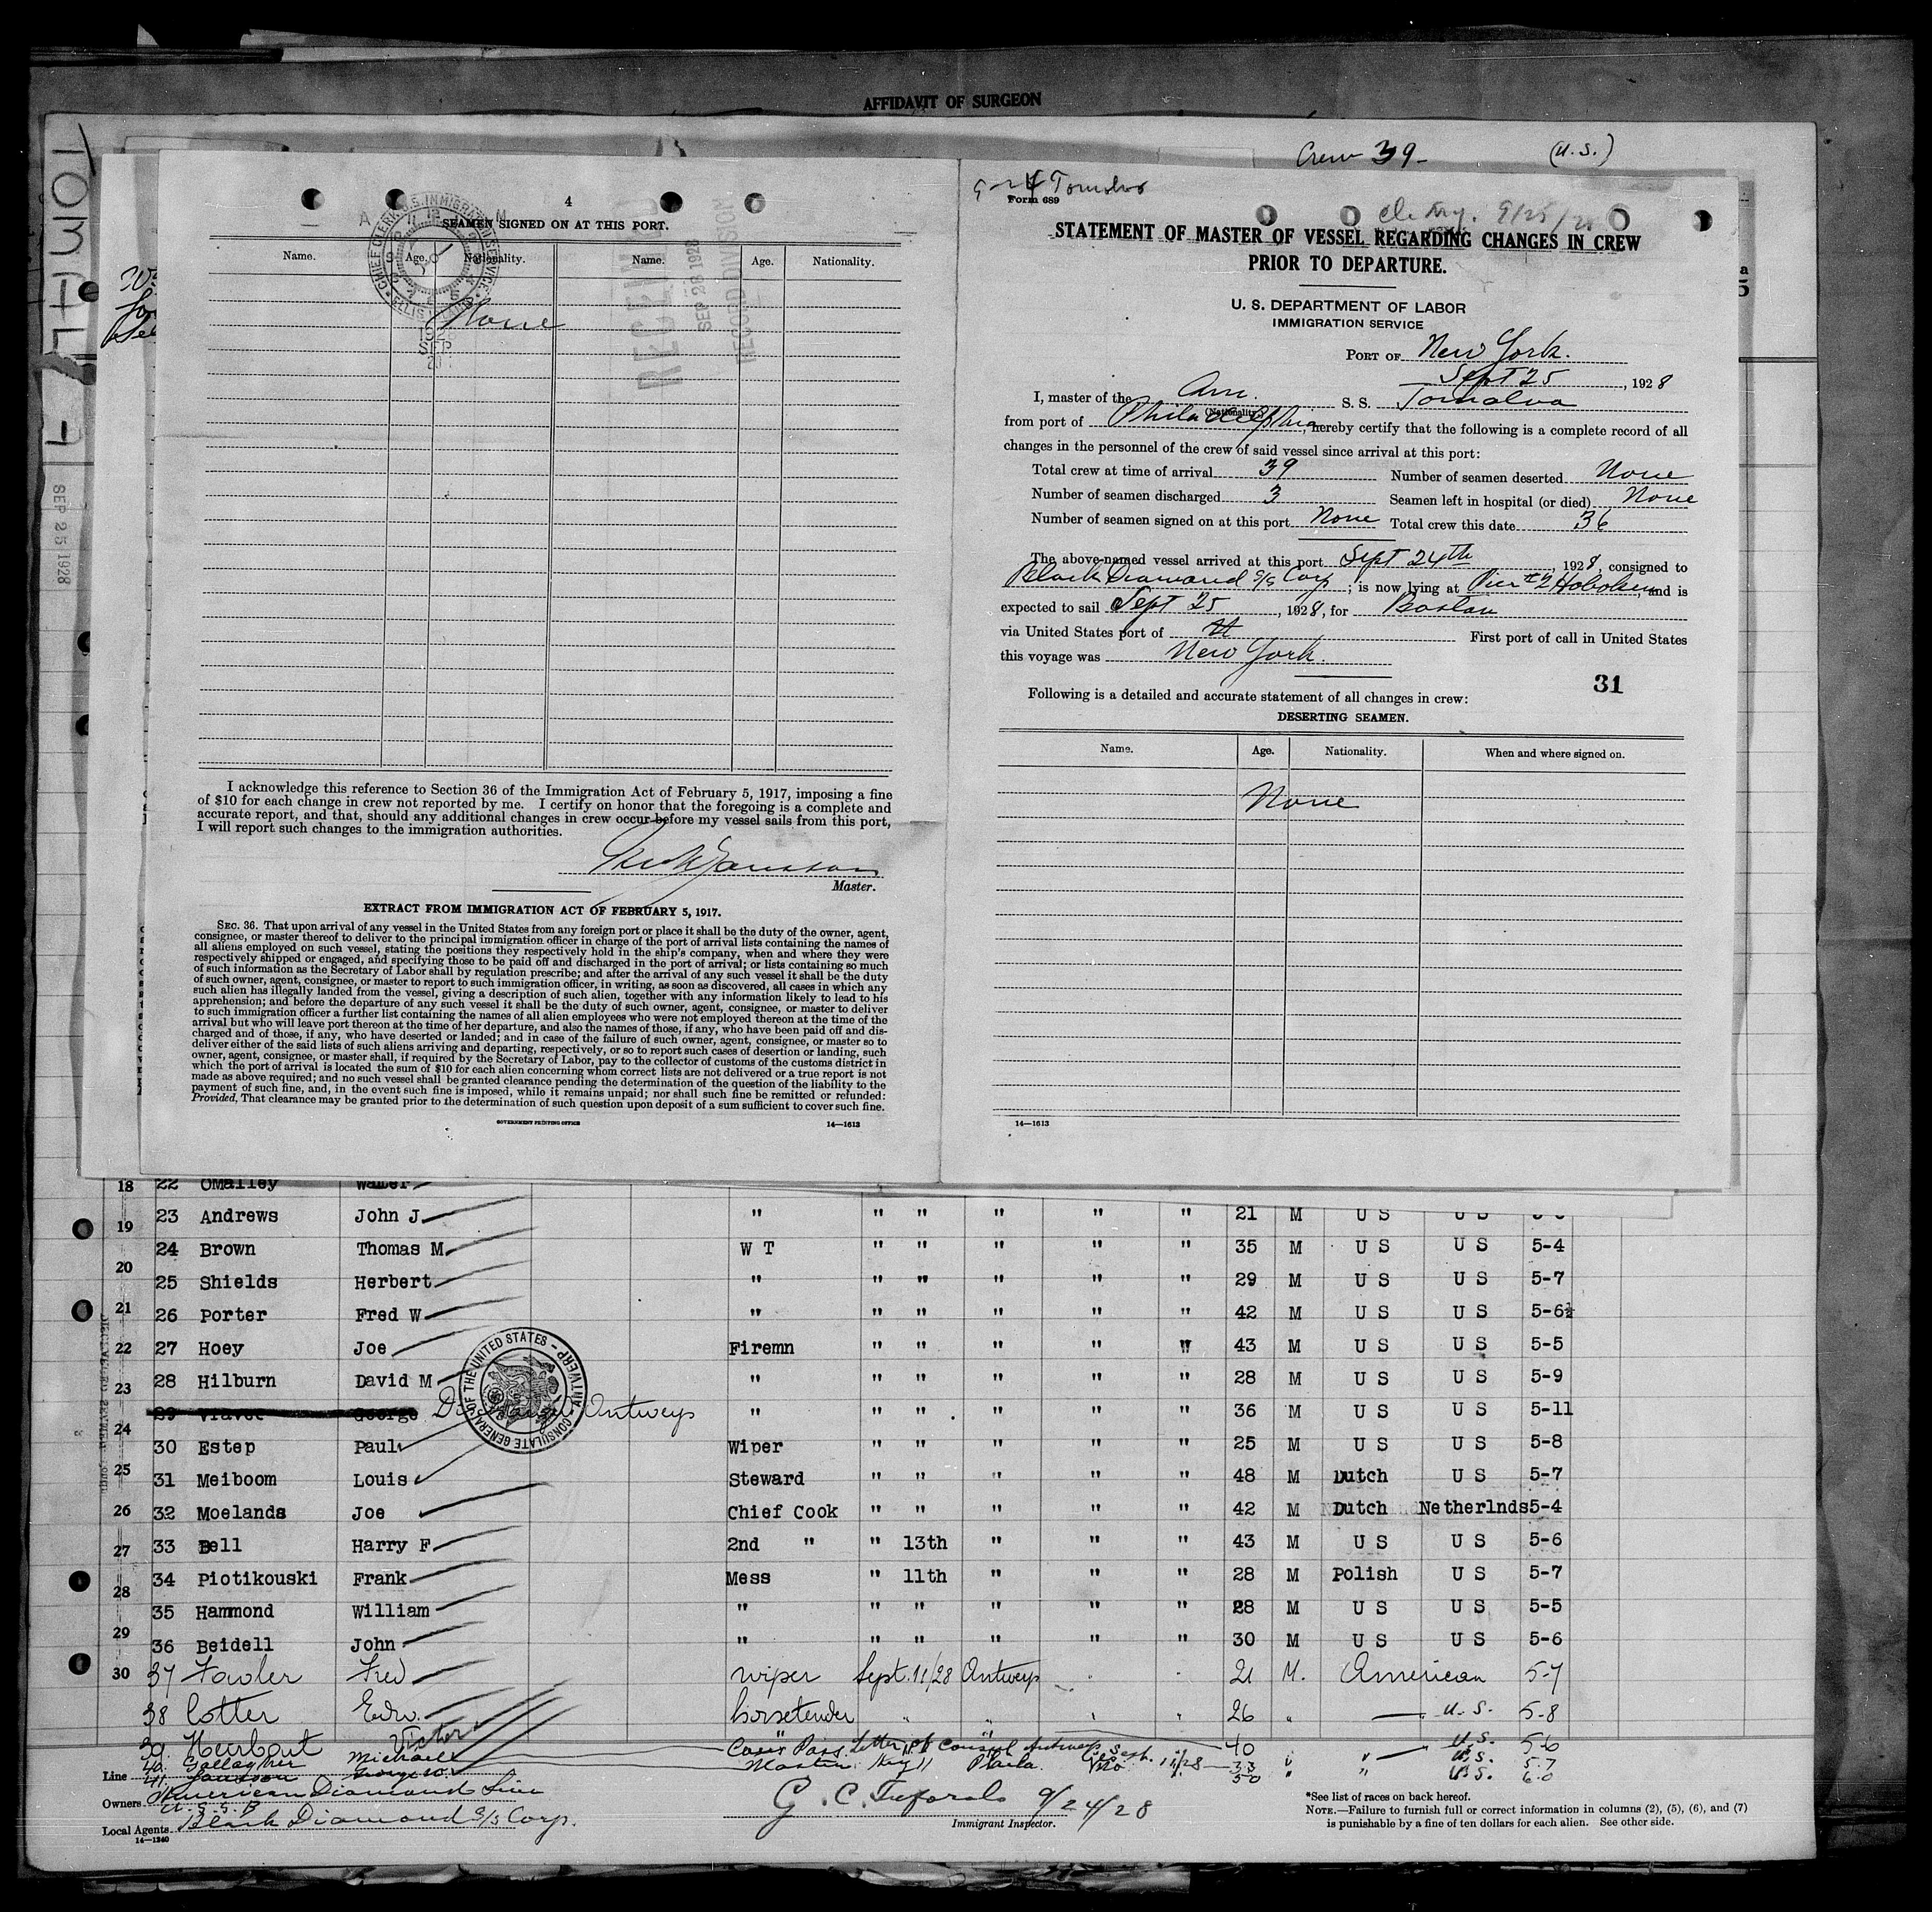 AFFIDAVIT OF SURGEON
Crew 39- (U.S.)
TOMALVA
SEP 25 1928
4
SEAMEN SIGNED ON AT THIS PORT.
Name. Age. Nationality. Name. Age. Nationality.
None
RECEIVED
SEP 28 1928
RECORD DIVISION
I acknowledge this reference to Section 36 of the Immigration Act of February 5, 1917, imposing a fine
of $10 for each change in crew not reported by me. I certify on honor that the foregoing is a complete and
accurate report, and that, should any additional changes in crew occur before my vessel sails from this port,
I will report such changes to the immigration authorities.
Master.
EXTRACT FROM IMMIGRATION ACT OF FEBRUARY 5, 1917.
SEC. 36. That upon arrival of any vessel in the United States from any foreign port or place it shall be the duty of the owner, agent,
consignee, or master thereof to deliver to the principal immigration officer in charge of the port of arrival lists containing the names of
all aliens employed on such vessel, stating the positions they respectively hold in the ship's company, when and where they were
respectively shipped or engaged, and specifying those to be paid off and discharged in the port of arrival; or lists containing so much
of such information as the Secretary of Labor shall by regulation prescribe; and after the arrival of any such vessel it shall be the duty
of such owner, agent, consignee, or master to report to such immigration officer, in writing, as soon as discovered, all cases in which any
such alien has illegally landed from the vessel, giving a description of such alien, together with any information likely to lead to his
apprehension; and before the departure of any such vessel it shall be the duty of such owner, agent, consignee, or master to deliver
to such immigration officer a further list containing the names of all alien employees who were not employed thereon at the time of the
arrival but who will leave port thereon at the time of her departure, and also the names of those, if any, who have been paid off and dis-
charged and of those, if any, who have deserted or landed; and in case of the failure of such owner, agent, consignee, or master so to
deliver either of the said lists of such aliens arriving and departing, respectively, or so to report such cases of desertion or landing, such
owner, agent, consignee, or master shall, if required by the Secretary of Labor, pay to the collector of customs of the customs district in
which the port of arrival is located the sum of $10 for each alien concerning whom correct lists are not delivered or a true report is not
made as above required; and no such vessel shall be granted clearance pending the determination of the question of the liability to the
payment of such fine, and, in the event such fine is imposed, while it remains unpaid; nor shall such fine be remitted or refunded:
Provided, That clearance may be granted prior to the determination of such question upon deposit of a sum sufficient to cover such fine.
GOVERNMENT PRINTING OFFICE 14—1613
9-24 Tomalva
Form 689
9/25/28
STATEMENT OF MASTER OF VESSEL REGARDING CHANGES IN CREW
PRIOR TO DEPARTURE.
U. S. DEPARTMENT OF LABOR
IMMIGRATION SERVICE
PORT OF New York.
Sept 25, 1928
I, master of the Am. S. S. Tomalva
(Nationality)
from port of Philadelphia, hereby certify that the following is a complete record of all
changes in the personnel of the crew of said vessel since arrival at this port:
Total crew at time of arrival 39 Number of seamen deserted None
Number of seamen discharged 3 Seamen left in hospital (or died) None
Number of seamen signed on at this port None Total crew this date 36
The above-named vessel arrived at this port Sept 24th, 1928, consigned to
Black Diamond S/S Corp; is now lying at Pier #2 Hoboken and is
expected to sail Sept 25, 1928, for Boston
via United States port of First port of call in United States
this voyage was New York.
31
Following is a detailed and accurate statement of all changes in crew:
DESERTING SEAMEN.
Name. Age. Nationality. When and where signed on.
None
14—1613
18 22 OMalley Walter
19 23 Andrews John J " " " " " " 21 M U S U S
24 Brown Thomas M W T " " " " " 35 M U S U S 5-4
20 25 Shields Herbert " " " " " " 29 M U S U S 5-7
21 26 Porter Fred W " " " " " " 42 M U S U S 5-6½
22 27 Hoey Joe Firemn " " " " " 43 M U S U S 5-5
23 28 Hilburn David M " " " " " " 28 M U S U S 5-9
29 George Antwerp " " " " " " 36 M U S U S 5-11
CONSULATE GENERAL OF THE UNITED STATES - ANTWERP
24 30 Estep Paul Wiper " " " " " 25 M U S U S 5-8
25 31 Meiboom Louis Steward " " " " " 48 M Dutch U S 5-7
26 32 Moelands Joe Chief Cook " " " " " 42 M Dutch Netherlnds 5-4
27 33 Bell Harry F 2nd " " 13th " " " 43 M U S U S 5-6
28 34 Piotikouski Frank Mess " 11th " " " 28 M Polish U S 5-7
35 Hammond William " " " " " " 28 M U S U S 5-5
29 36 Beidell John " " " " " " 30 M U S U S 5-6
30 37 Fowler Fred wiper Sept. 11/28 Antwerp 21 M. American 5-7
38 Cotter Edw. horsetender " " " " 26 " U.S. 5-8
39. Victor 40 U.S. 5-6
40. Gallagher Michael Letter of Consul Antwerp Sept. 11/28 33 " " U.S. 5-7
41. George W. Master Phila. 50 " " U.S. 6.0
Line American Diamond Line
Owners U.S.S.B
Local Agents Black Diamond S/S Corp.
14—1240
9/24/28
Immigrant Inspector.
*See list of races on back hereof.
NOTE.—Failure to furnish full or correct information in columns (2), (5), (6), and (7)
is punishable by a fine of ten dollars for each alien. See other side.